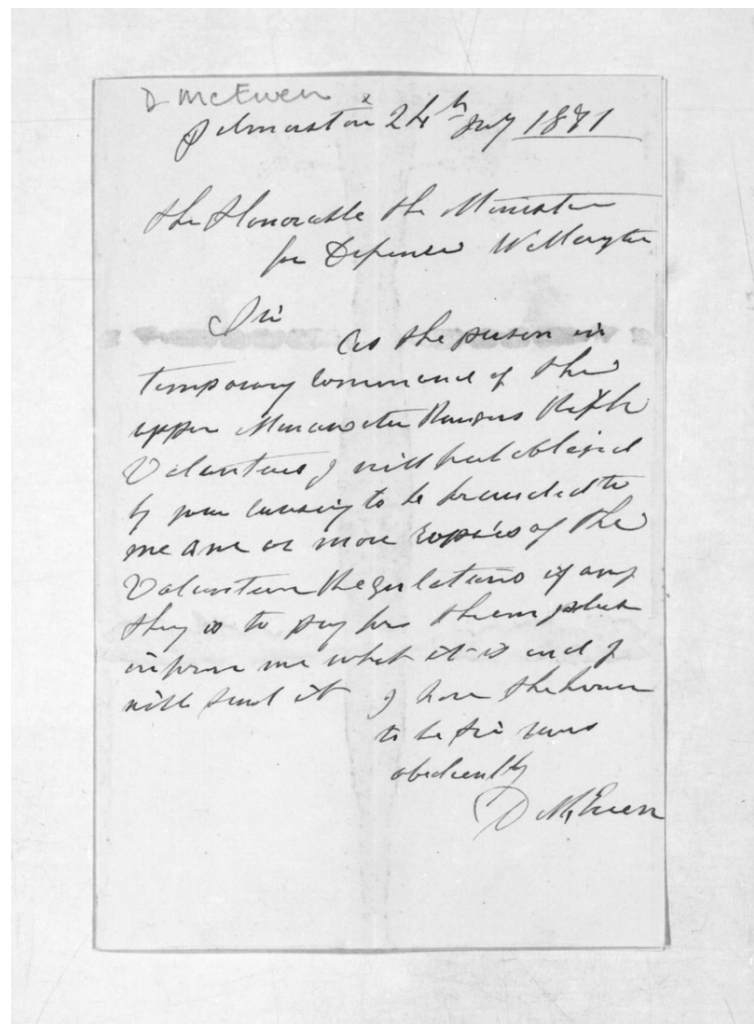 D McEwen
Palmerston 24th July 1871
The Honorable the Minister
for Defence Wellington
Sir
As the person in
temporary command of the
upper Manawatu Rifle
Volunteers I will feel obliged
by your causing to be forwarded to
me one or more copies of the
Volunteer Regulations if any
thing is to pay for them please
inform me what it is and I
will send it I have the honor
to be Sir yours
obediently
D McEwen